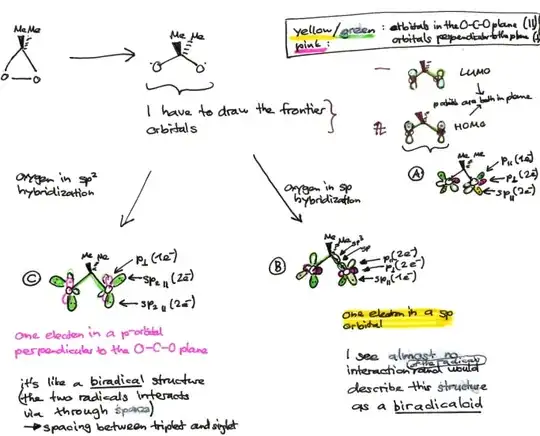 yellow/green : orbitals in the O-C-O plane (||)
pink : orbitals perpendicular to the plane (⊥)
Me Me
O O
Me Me
O O
I have to draw the frontier
orbitals
LUMO
p orbitals are both in plane
HOMO
A
Me Me
p|| (1e⁻)
p⊥ (2e⁻)
sp|| (2e⁻)
oxygen in sp²
hybridization
oxygen in sp
hybridization
C
Me Me
p⊥ (1e⁻)
sp₂ || (2e⁻)
sp₂ || (2e⁻)
B
Me Me
sp³
sp
p|| (2e⁻)
p⊥ (2e⁻)
sp|| (1e⁻)
one electron in a p-orbital
perpendicular to the O-C-O plane
it's like a biradical structure
(the two radicals interacts
via through space)
→ spacing between triplet and singlet
one electron in a sp
orbital
I see almost no
of the radicals
interaction and would
describe this structure
as a biradicaloid